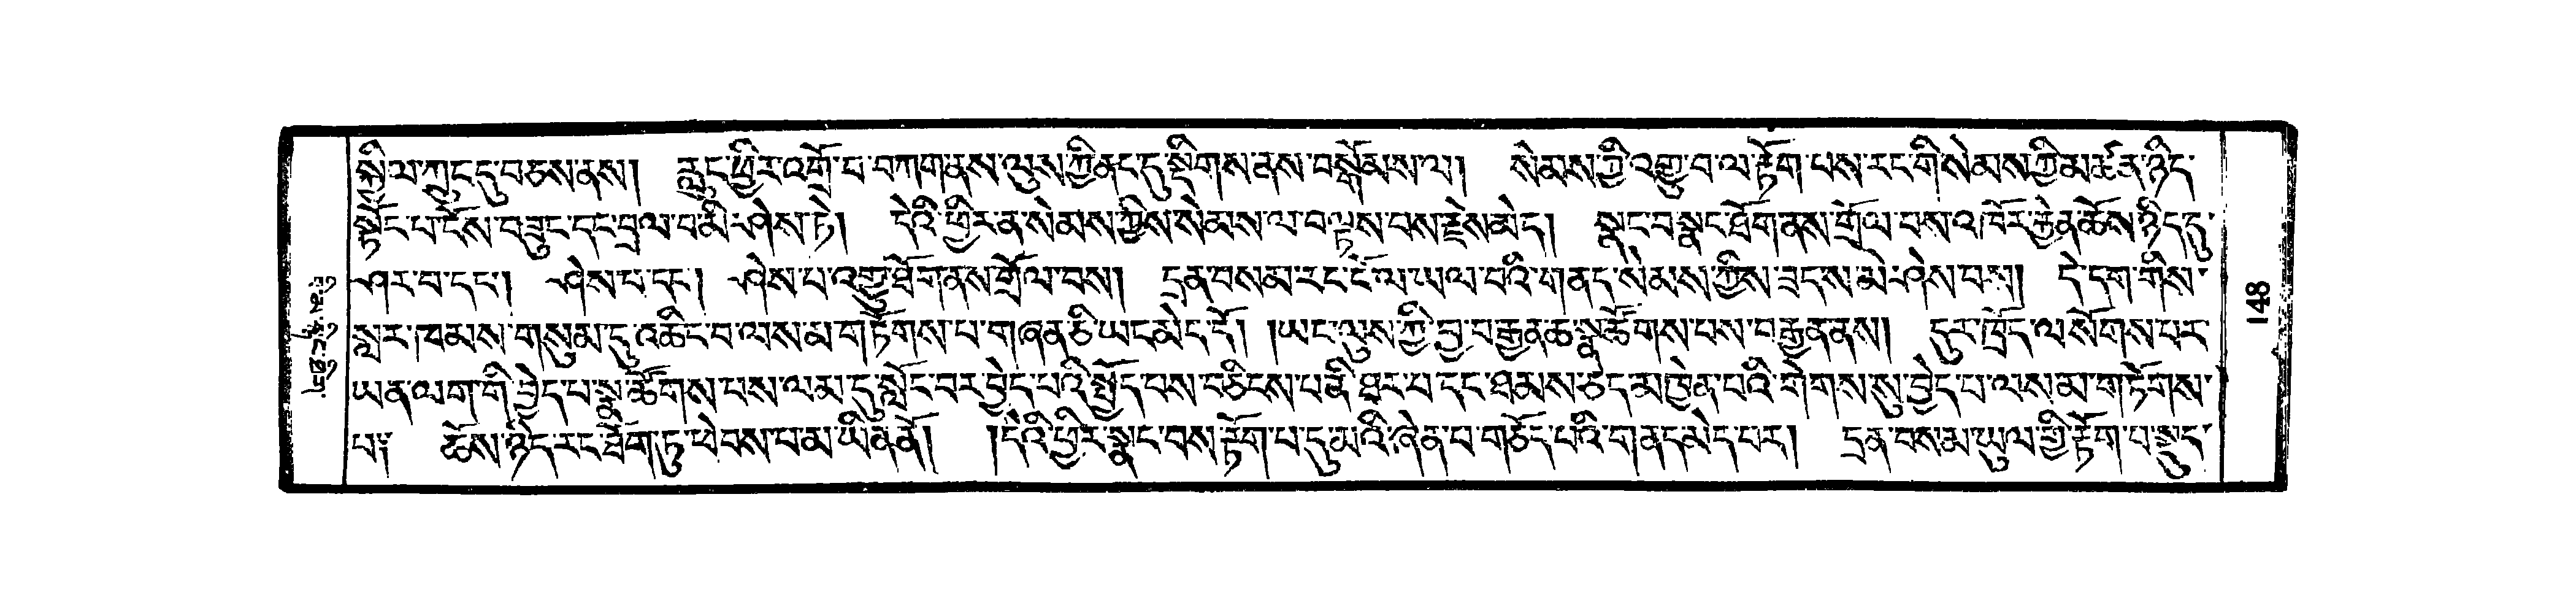 སྐྱིལ་ཀྲུང་དུ་བཅས་ནས། རླུང་ཕྱིར་འགྲོ་བ་བཀག་ནས་ལུས་ཀྱི་ནང་དུ་སྡིགས་ནས་བསྒོམས་ལ། སེམས་ཀྱི་འགྱུ་བ་ལ་རྟོག་པས་རང་གི་སེམས་ཀྱི་མཚན་ཉིད་
སྟོང་པ་ངོས་བཟུང་དང་བྲལ་བ་མི་ཤེས་ཏེ། དེའི་ཕྱིར་ན་སེམས་ཀྱིས་སེམས་ལ་བལྟས་པས་རྗེས་མེད། སྣང་བ་སྣང་ཐོག་ནས་གྲོལ་བས་འཁོར་རྐྱེན་ཆོས་ཉིད་དུ་
ཤར་བ་དང་། ཤེས་པ་དང་། ཤེས་པ་འགྱུ་ཐོག་ནས་གྲོལ་བས། དྲན་བསམ་རང་ངོ་ལ་ཡལ་བའི་གནད་སེམས་ཀྱིས་ཟད་ས་མི་ཤེས་པས། དེ་དག་གིས་
སླར་ཁམས་གསུམ་དུ་འཆིང་བ་ལས་མ་གཏོགས་པ་གཞན་ཅི་ཡང་མེད་དོ། །ཡང་ལུས་ཀྱི་བྱ་བ་རྒྱན་ཆ་སྣ་ཚོགས་པས་བརྒྱན་ནས། དུར་ཁྲོད་ལ་སོགས་པར་
ཡན་ལག་གི་བྱེད་པ་སྣ་ཚོགས་པས་ལམ་དུ་སློང་བར་བྱེད་པའི་སྤྱོད་པས་བཅིངས་པ་ནི་ཐར་པ་དང་ཐམས་ཅད་མཁྱེན་པའི་གེགས་སུ་བྱེད་པ་ལས་མ་གཏོགས་
པ༔ ཆོས་ཉིད་རང་ཐོག་ཏུ་ཕེབས་པ་མ་ཡིན་ནོ། །དེའི་ཕྱིར་སྣང་བས་རྟོག་པ་དུ་མའི་ཞེན་པ་གཅོད་པའི་གནད་མེད་པར། དྲན་བསམ་ཡུལ་གྱི་རྟོག་པ་སྡུད་